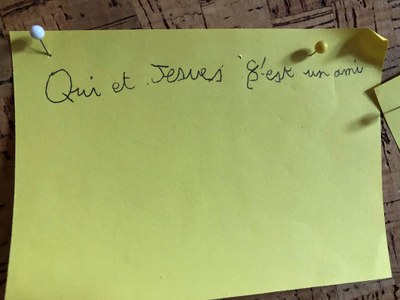 Qui et Jesues c'est un ami